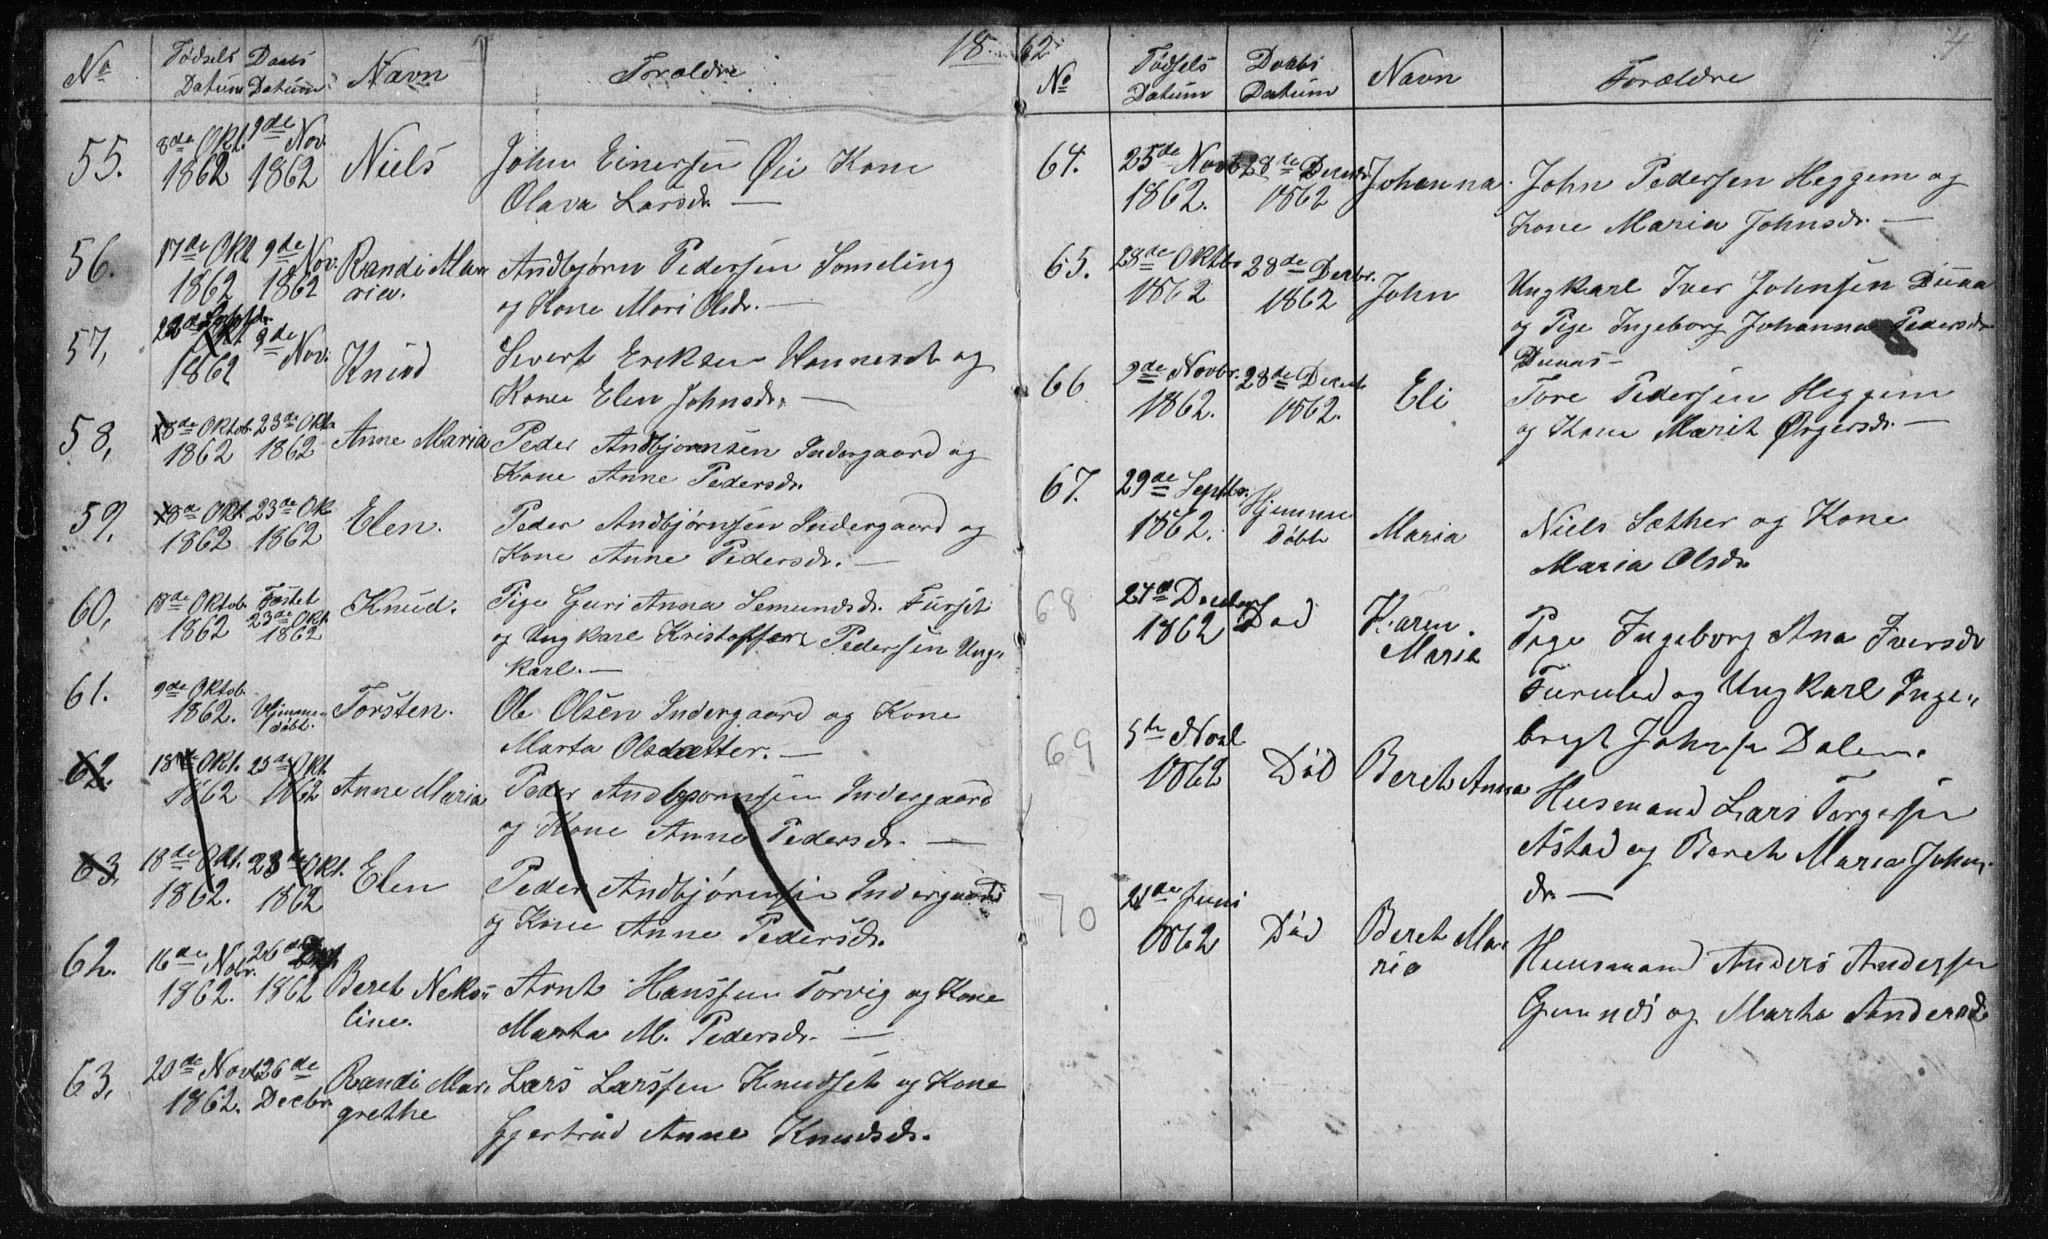 1862
No Fødsels Datum Daabs Datum Navn Forældre
55. 8de Okt. 1862 9de Nov. 1862 Niels John Einersen Øie Kone
Olava Larsdr. —
56. 17de Okt 1862 9de Nov. 1862 Randi Maria. Andbjørn Pedersen Someling
og Kone Mari Olsdr. —
57, 1862 9de Nov. Knud Sivert Eriksen Hannesdt og
Kone Elen Johnsdr. —
58, 18de Oktob. 1862 23de Oktb 1862 Anne Maria Peder Andbjørnsen Indergaard og
Kone Anne Pedersdr.
59, 18de Okt. 1862 23de Ok 1862 Elen. Peder Andbjørnsen Indergaard og
Kone Anne Pedersdr. —
60, 18de Oktob. 1862 23de Okt. 1862 Knud. Pige Guri Anna Semundsdr. Furset
og Ungkarl Kristoffer Pedersen Ung-
karl. —
61. 9de Oktob. 1862. Hjemme døbt. Torsten. Ole Olsen Indergaard og Kone
Marta Olsdatter. —
62. 18de Okt. 1862 23de Okt. 1862 Anne Maria Peder Andbjørnsen Indergaard
og Kone Anne Pedersdr. —
63, 18de Okt. 1862. 23de Okt. 1862 Elen Peder Andbjørnsen Indergaard
og Kone Anne Pedersdr.
62. 16de Nobr. 1862. 26de 1862 Beret Nekoline. Arnt Hanssen Torvig og Kone
Marta M. Pedersdr. —
63, 20de Novb 1862. 26de Decbr. Randi Margrethe Lars Larssen Knudset og Kone
Gjertrud Anne Knudsdr.
4
No Fødsels Datum Daabs Datum Navn Forældre
64. 25de Novb 1862. 28de Decmbr 1862 Johanna. John Pedersen Heggem og
Kone Maria Johnsdr. —
65. 28de Oktbr 1862 28de Decbr. 1862 John Ungkarl Iver Johnsen Duna
og Pige Ingeborg Johanna Pedersdr
Dunas—
66 9de Novbr. 1862. 28de Decmb 1862. Eli Tore Pedersen Heggem
og Kone Marit Ørgersdr. —
67. 29de Septbr. 1862. Hjemme Døbt Maria Niels Sæther og Kone
Maria Olsdr.
68 1862 Død Karen Maria Pige Ingeborg Ana Iversdr
og Ungkarl Inge-
brigt Johnsen Dalen.
69 5te Novb. 1862 Død Bereth Anna Husmand Lars Torgersen
Astad og Bereth Maria Johns-
dr —
70 21de Juni 1862 Død Bereth Maria Huusmand Anders Andersen
og Martha Andersdr